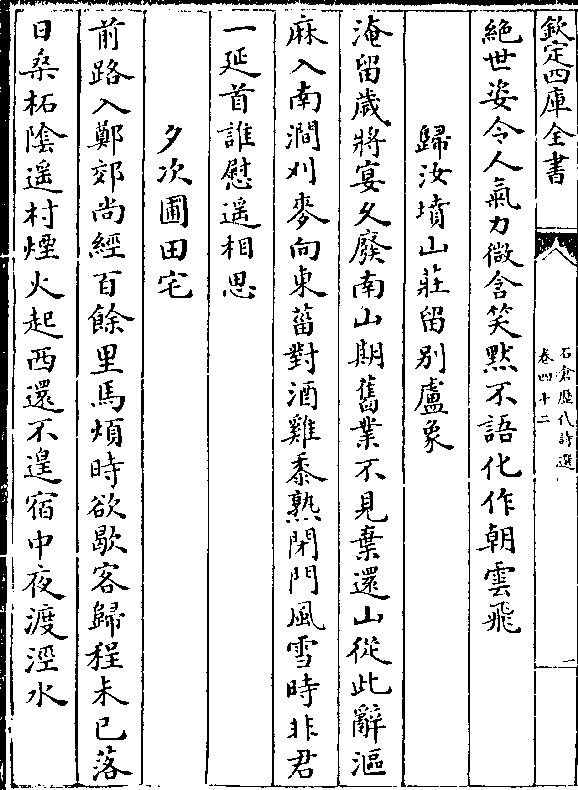 欽定四庫全書
石倉歴代詩選
卷四十二
一
絕世姿令人氣力微含笑黙不語化作朝雲飛
歸汝墳山莊留別盧象
淹留歲將宴久廢南山期舊業不見棄還山從此辭漚
麻入南澗刈麥向東菑對酒雞黍熟閉門風雪時非君
一延首誰慰遥相思
夕次圃田宅
前路入鄭郊尚經百餘里馬煩時欲歇客歸程未已落
日桑柘陰遥村煙火起西還不遑宿中夜渡涇水